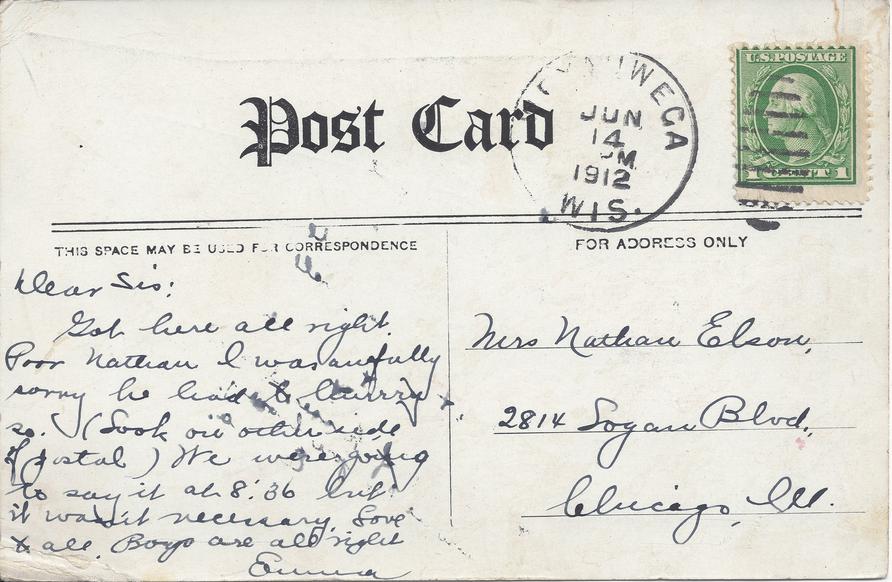 Post Card
WEGA
JUN
14
PM
1912
WIS.
U.S. POSTAGE
1 CENT 1
THIS SPACE MAY BE USED FOR CORRESPONDENCE
FOR ADDRESS ONLY
Dear Sis:
Got here all right.
Poor Nathan I was awfully
sorry he had to hurry
so. (Look on other side
of postal) We were going
to say it at 8:36 but
it wasn't necessary. Love
to all. Boys are all right
Emma
Mrs Nathan Elson,
2814 Logan Blvd.,
Chicago, Ill.